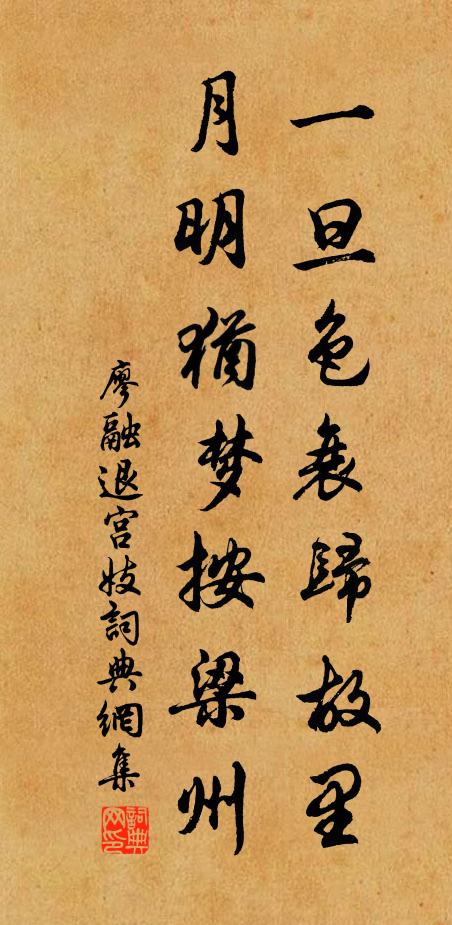 一旦色衰歸故里
月明猶梦按梁州
廖融退宫妓詞典網集
詞典網印